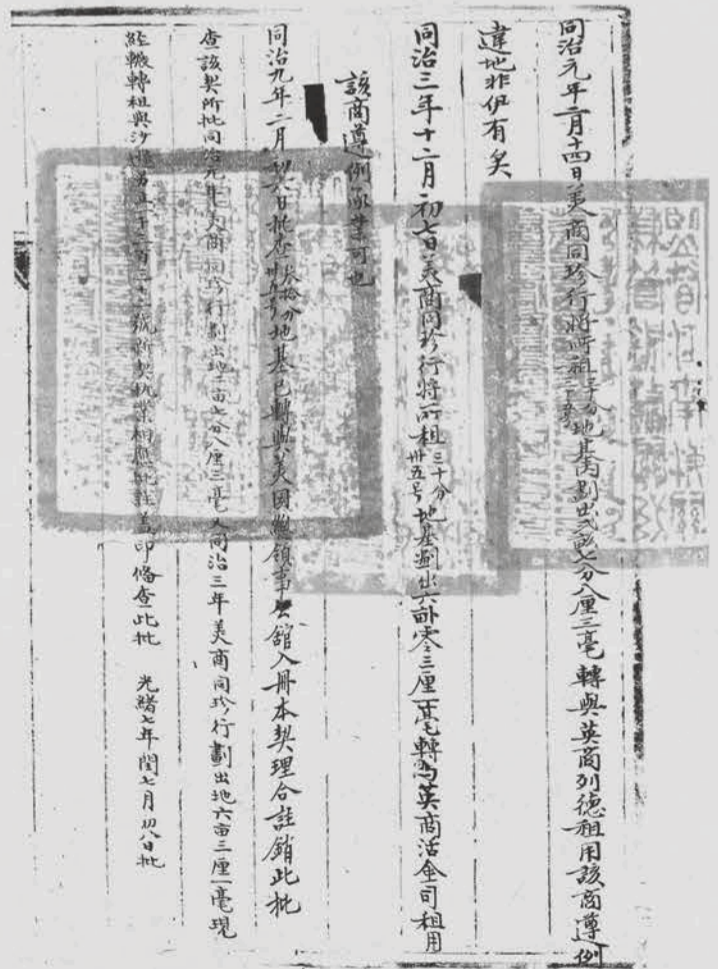 同治元年二月十四日美商同珍行將所租三十分地基內劃出弍畝七分八厘三毫轉與英商列德租用該商遵例
違地非伊有矣
同治三年十二月初七日美商同珍行將所租三十分卅五号地基劃出六畝零三厘一毫轉与英商活金司租用
該商遵例承業可也
同治九年二月初八日批查叁拾分卅五号地基已轉與美國總領事公館入冊本契理合註銷此批
查該契所批同治元年美商同珍行劃出地二亩七分八厘三毫又同治三年美商同珍行劃出地六亩三厘一毫現
經轍轉租與沙遜另立千二百三十二號新契執業相應批註蓋印備查此批 光緒七年閏七月初八日批